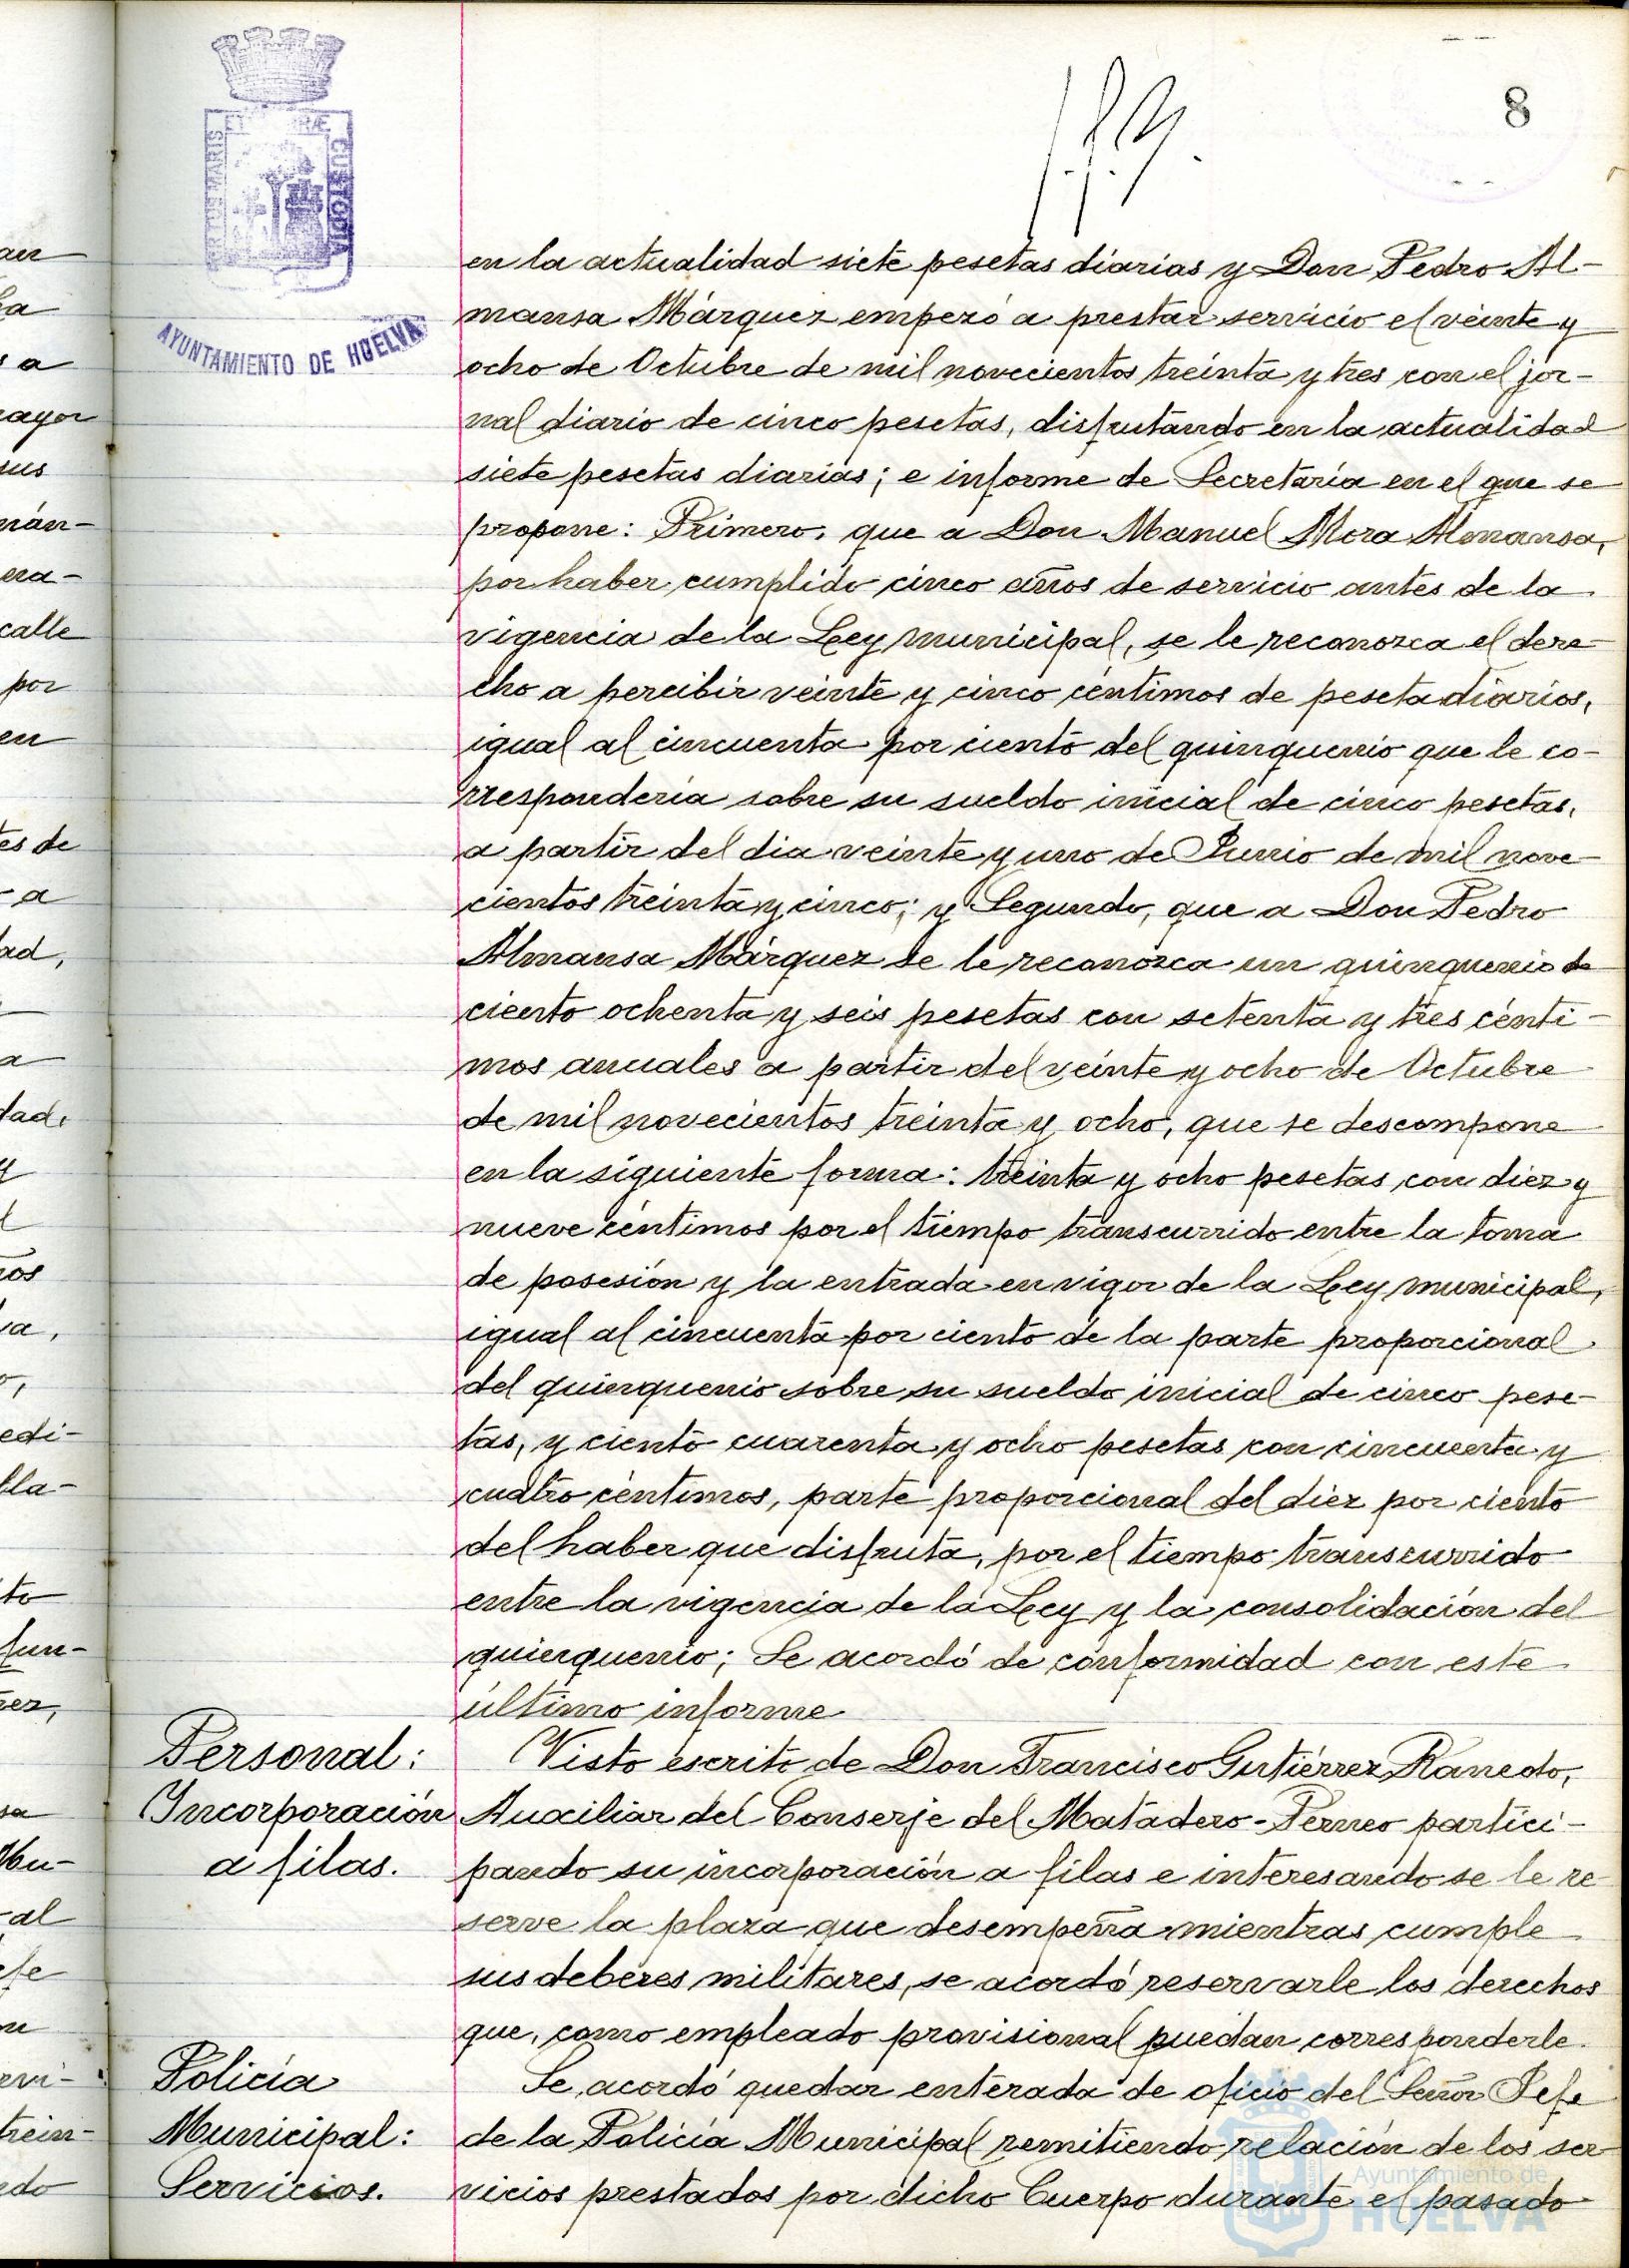 8
AYUNTAMIENTO DE HUELVA
en la actualidad siete pesetas diarias y Don Pedro Al-
mansa Márquez empezó a prestar servicio el veinte y
ocho de Octubre de mil novecientos treinta y tres con el jor-
nal diario de cinco pesetas, disfrutando en la actualidad
siete pesetas diarias; e informe de Secretaría en el que se
propone: Primero, que a Don Manuel Mora Almansa,
por haber cumplido cinco años de servicio antes de la
vigencia de la Ley municipal, se le reconozca el dere-
cho a percibir veinte y cinco céntimos de peseta diarios,
igual al cincuenta por ciento del quinquenio que le co-
rrespondería sobre su sueldo inicial de cinco pesetas,
a partir del dia veinte y uno de Junio de mil nove-
cientos treinta y cinco; y Segundo, que a Don Pedro
Almansa Márquez se le reconozca un quinquenio de
ciento ochenta y seis pesetas con setenta y tres cénti-
mos anuales a partir del veinte y ocho de Octubre
de mil novecientos treinta y ocho, que se descompone
en la siguiente forma: treinta y ocho pesetas con diez y
nueve céntimos por el tiempo transcurrido entre la toma
de posesión y la entrada en vigor de la Ley municipal,
igual al cincuenta por ciento de la parte proporcional
del quinquenio sobre su sueldo inicial de cinco pese-
tas, y ciento cuarenta y ocho pesetas con cincuenta y
cuatro céntimos, parte proporcional del diez por ciento
del haber que disfruta, por el tiempo transcurrido
entre la vigencia de la Ley y la consolidación del
quinquenio; Se acordó de conformidad con este
último informe
Personal:
Incorporación
a filas.
Visto escrito de Don Francisco Gutiérrez Ranedo,
Auxiliar del Conserje del Matadero-Perneo partici-
pando su incorporación a filas e interesando se le re-
serve la plaza que desempeña mientras cumple
sus deberes militares, se acordó reservarle los derechos
que, como empleado provisional puedan corresponderle.
Policía
Municipal:
Servicios.
Se acordó quedar enterada de oficio del Señor Jefe
de la Policía Municipal remitiendo relación de los ser-
vicios prestados por dicho Cuerpo durante el pasado
Ayuntamiento de
HUELVA